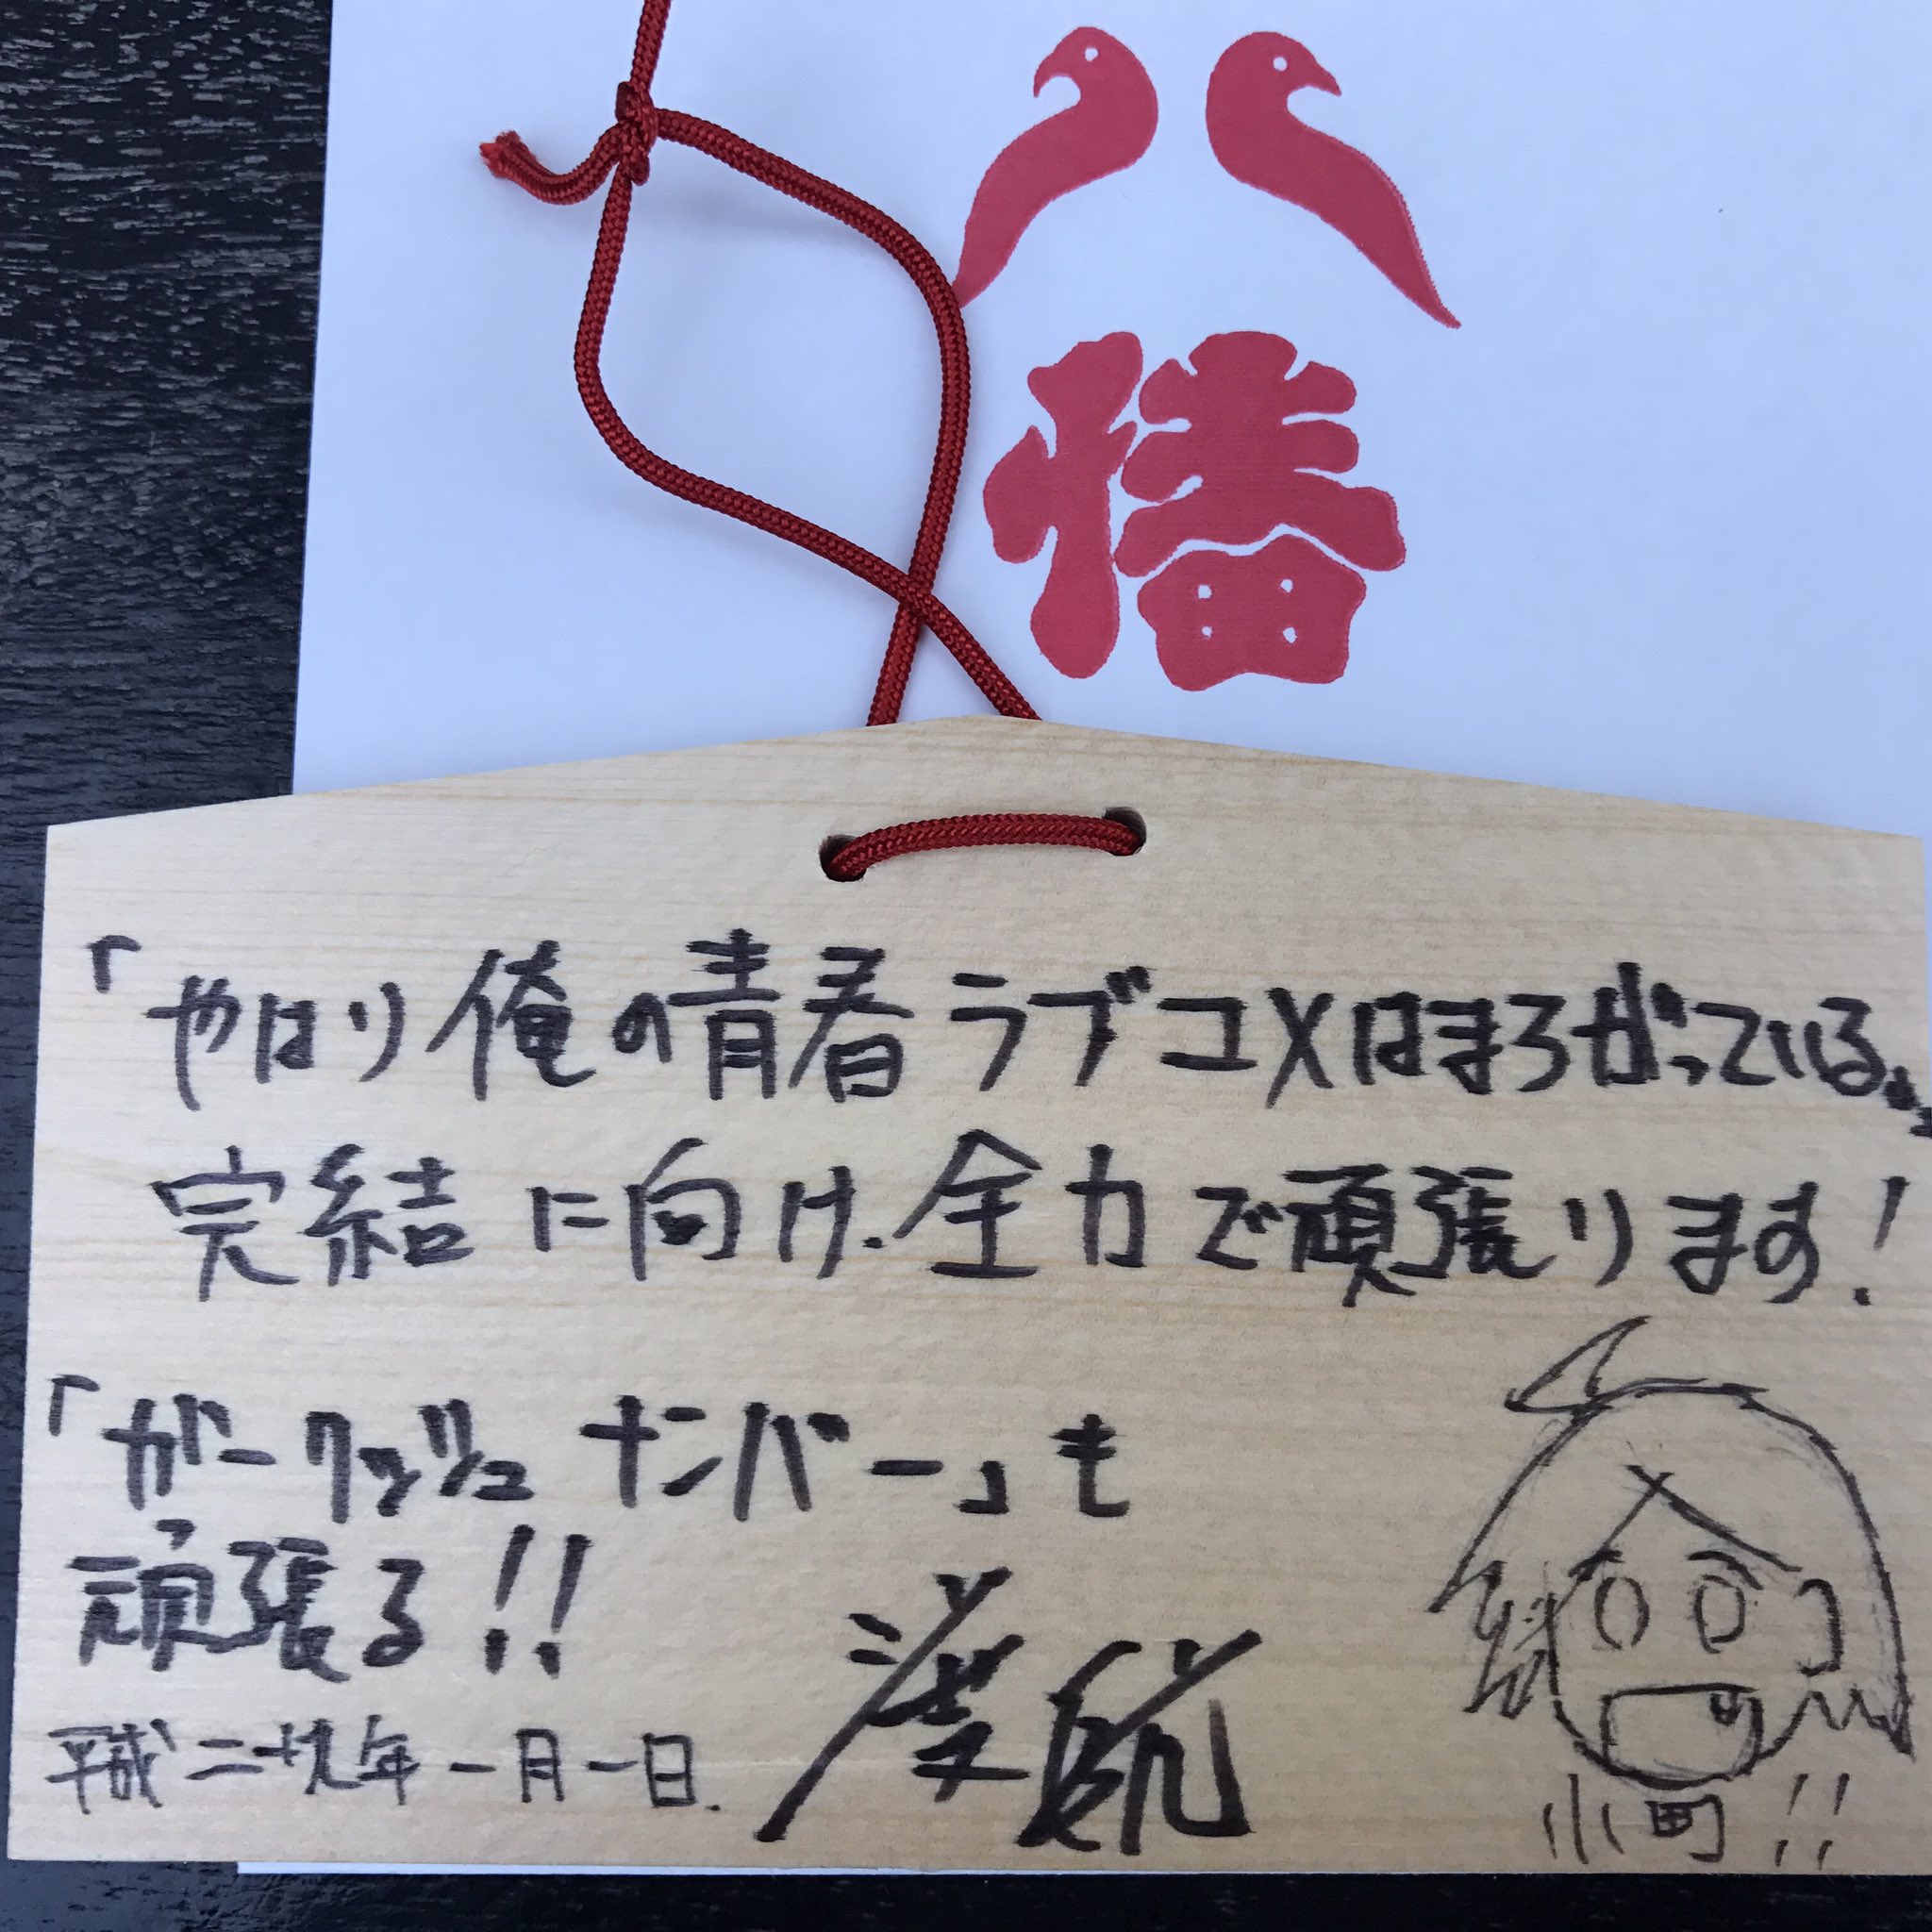 八幡
「やはり俺の青春ラブコメはまちがっている。」
完結に向け、全力で頑張ります!
「ガーリッシュ ナンバー」も
頑張る!!
平成二十九年一月一日.
渡航
小町!!